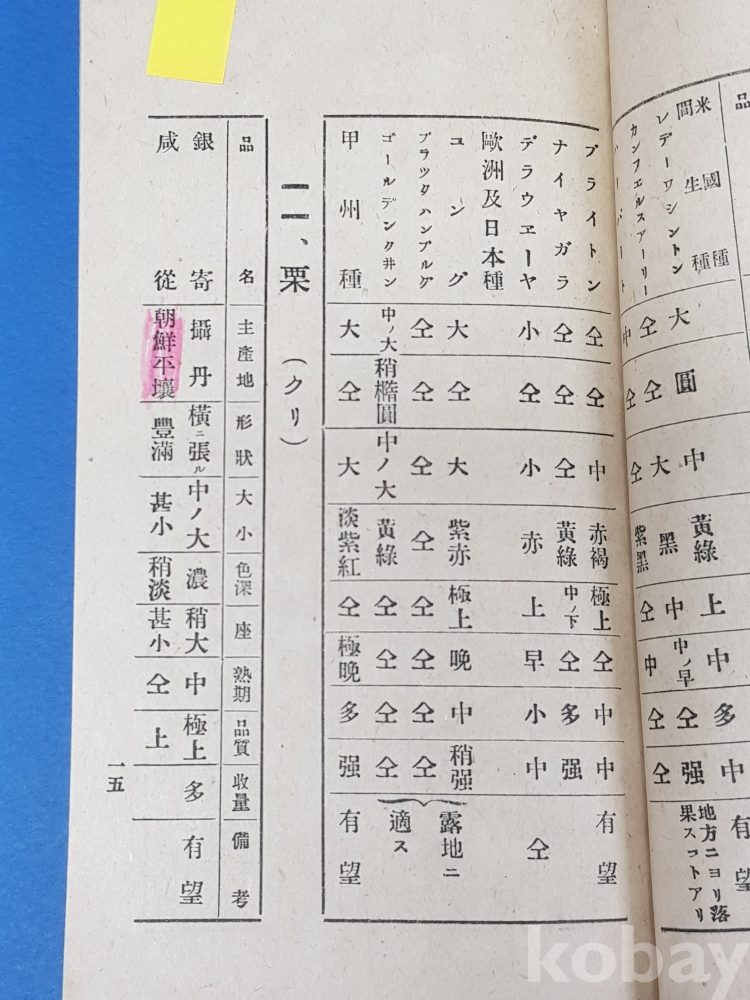 品
米國種間生種
レデーワシントン 大 圓 中 黃綠 上 中 多 中 有望
カンフエルスアーリー 仝 仝 大 黑 中 中ノ早 仝 强 地方ニヨリ落果スコトアリ
中 仝 仝 紫黑 仝 中 仝 仝
ブライトン 仝 仝 中 赤褐 極上 仝 中 中 有望
ナイヤガラ 仝 仝 仝 黃綠 中ノ下 仝 多 强
デラウヱーヤ 小 仝 小 赤 上 早 小 中 仝
歐洲及日本種
ユング 大 仝 大 紫赤 極上 晩 中 稍强 露地ニ
ブラツクハンブルグ 仝 仝 仝 仝 仝 仝 仝 適ス
ゴールデンクヰン 中ノ大 稍橢圓 中ノ大 黃綠 仝 仝 仝 仝
甲州種 大 仝 大 淡紫紅 仝 極晩 多 强 有望
二、栗（クリ）
品名 主產地 形狀 大小 色深 座 熟期 品質 收量 備考
銀寄 攝丹 橫ニ張ル 中ノ大 濃 稍大 中 極上 多 有望
咸從 朝鮮平壤 豐滿 甚小 稍淡 甚小 仝 上
一五
kobay